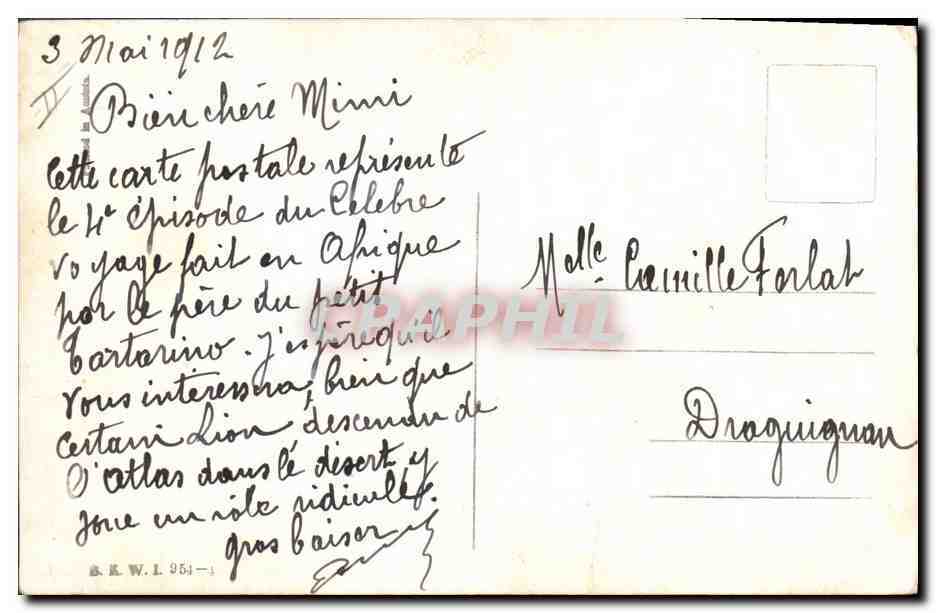 3 Mai 1912
II
Bien chère Mimi
Cette carte postale représente
le 4e épisode du Celebre
voyage fait en Afrique
par le père du pétit
Tartarino. J'espère qu'il
vous intéressera, bien que
certain Lion descendu de
l'Atlas dans le désert y
joue un rôle ridicule.
gros baiser
B. K. W. I. 954-4
Melle Camille Forlat
Draguignan
CPAPHIL